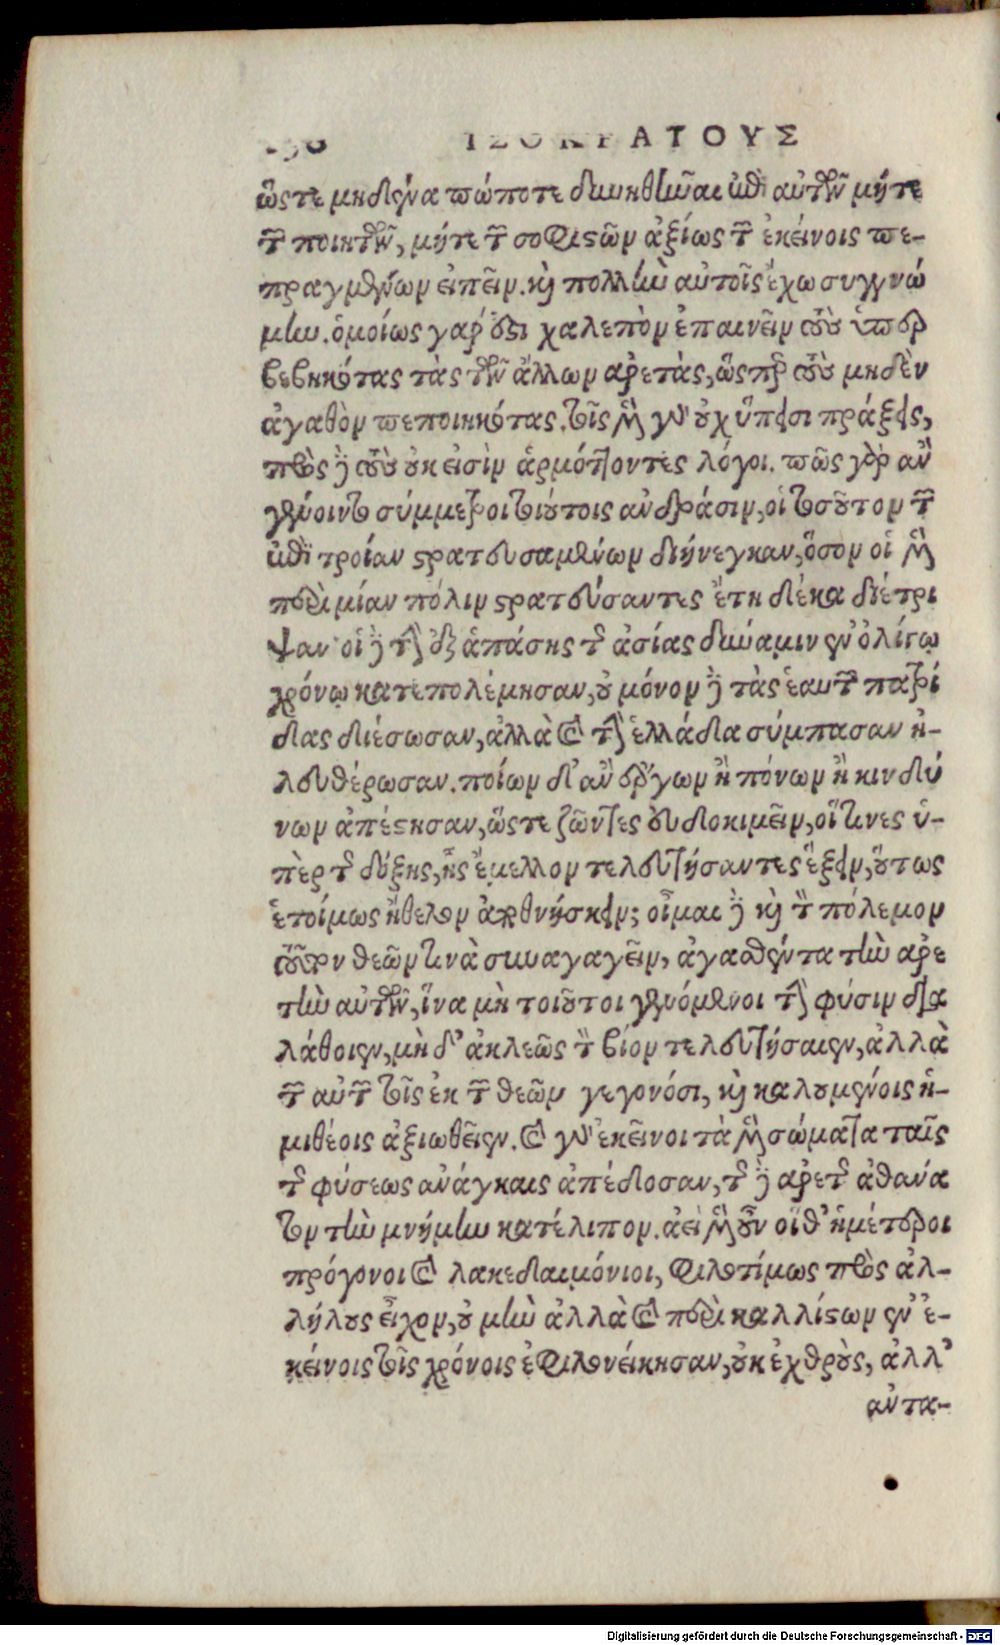 ΙΣΟΚΡΑΤΟΥΣ
ὥςτε μηδένα πώποτε δυνηθῆναι μήτε
τῶν ποιητῶν, μήτε τῶν σοφιστῶν ἀξίως τῶν ἐκείνοις πε-
πραγμένων εἰπεῖν. καὶ πολλὴν αὐτοῖς ἔχω συγγνώ
μην. ὁμοίως γάρ ἐστι χαλεπὸν ἐπαινεῖν τοὺς ὑπερ
βεβηκότας τὰς τῶν ἄλλων ἀρετὰς, ὥςπερ τοὺς μηδὲν
ἀγαθὸν πεποιηκότας. τοῖς μὲν γὰρ οὐχ ὕπεισι πράξεις,
πρὸς δὲ τοὺς οὐκ εἰσὶν ἁρμόττοντες λόγοι. πῶς γὰρ ἂν
γένοιντο σύμμετροι τοιούτοις ἀνδράσιν, οἳ τοσοῦτον τῶν
ἐπὶ τροίαν στρατευσαμένων διήνεγκαν, ὅσον οἱ μὲν
περὶ μίαν πόλιν στρατεύσαντες ἔτη δέκα διέτρι
ψαν· οἱ δὲ τὴν ἐξ ἁπάσης τῆς ἀσίας δύναμιν ἐν ὀλίγῳ
χρόνῳ κατεπολέμησαν, οὐ μόνον δὲ τὰς ἑαυτῶν πατρί
δας διέσωσαν, ἀλλὰ καὶ τὴν ἑλλάδα σύμπασαν ἠ-
λευθέρωσαν. ποίων δ' ἂν ἔργων ἢ πόνων ἢ κινδύ
νων ἀπέστησαν, ὥςτε ζῶντες εὐδοκιμεῖν, οἵτινες ὑ-
πὲρ τῆς δόξης, ἧς ἔμελλον τελευτήσαντες ἕξειν, οὕτως
ἑτοίμως ἤθελον ἀποθνήσκειν; οἶμαι δὲ καὶ τὸν πόλεμον
θεῶν τινὰ συναγαγεῖν, ἀγασθέντα τὴν ἀρε
τὴν αὐτῶν, ἵνα μὴ τοιοῦτοι γενόμενοι τὴν φύσιν δια
λάθοιεν, μὴ δ' ἀκλεῶς τὸν βίον τελευτήσαιεν, ἀλλὰ
τῶν αὐτῶν τοῖς ἐκ τῶν θεῶν γεγονόσι, καὶ καλουμένοις ἡ-
μιθέοις ἀξιωθεῖεν. καὶ γὰρ ἐκεῖνοι τὰ μὲν σώματα ταῖς
τῆς φύσεως ἀνάγκαις ἀπέδοσαν, τῆς δὲ ἀρετῆς ἀθάνα
τον τὴν μνήμην κατέλιπον. ἀεὶ μὲν οὖν οἵ θ' ἡμέτεροι
πρόγονοι καὶ λακεδαιμόνιοι, φιλοτίμως πρὸς ἀλ-
λήλους εἶχον, οὐ μὴν ἀλλὰ καὶ περὶ καλλίστων ἐν ἐ-
κείνοις τοῖς χρόνοις ἐφιλονείκησαν, οὐκ ἐχθροὺς, ἀλλ'
ἀντα-
Digitalisierung gefördert durch die Deutsche Forschungsgemeinschaft - DFG